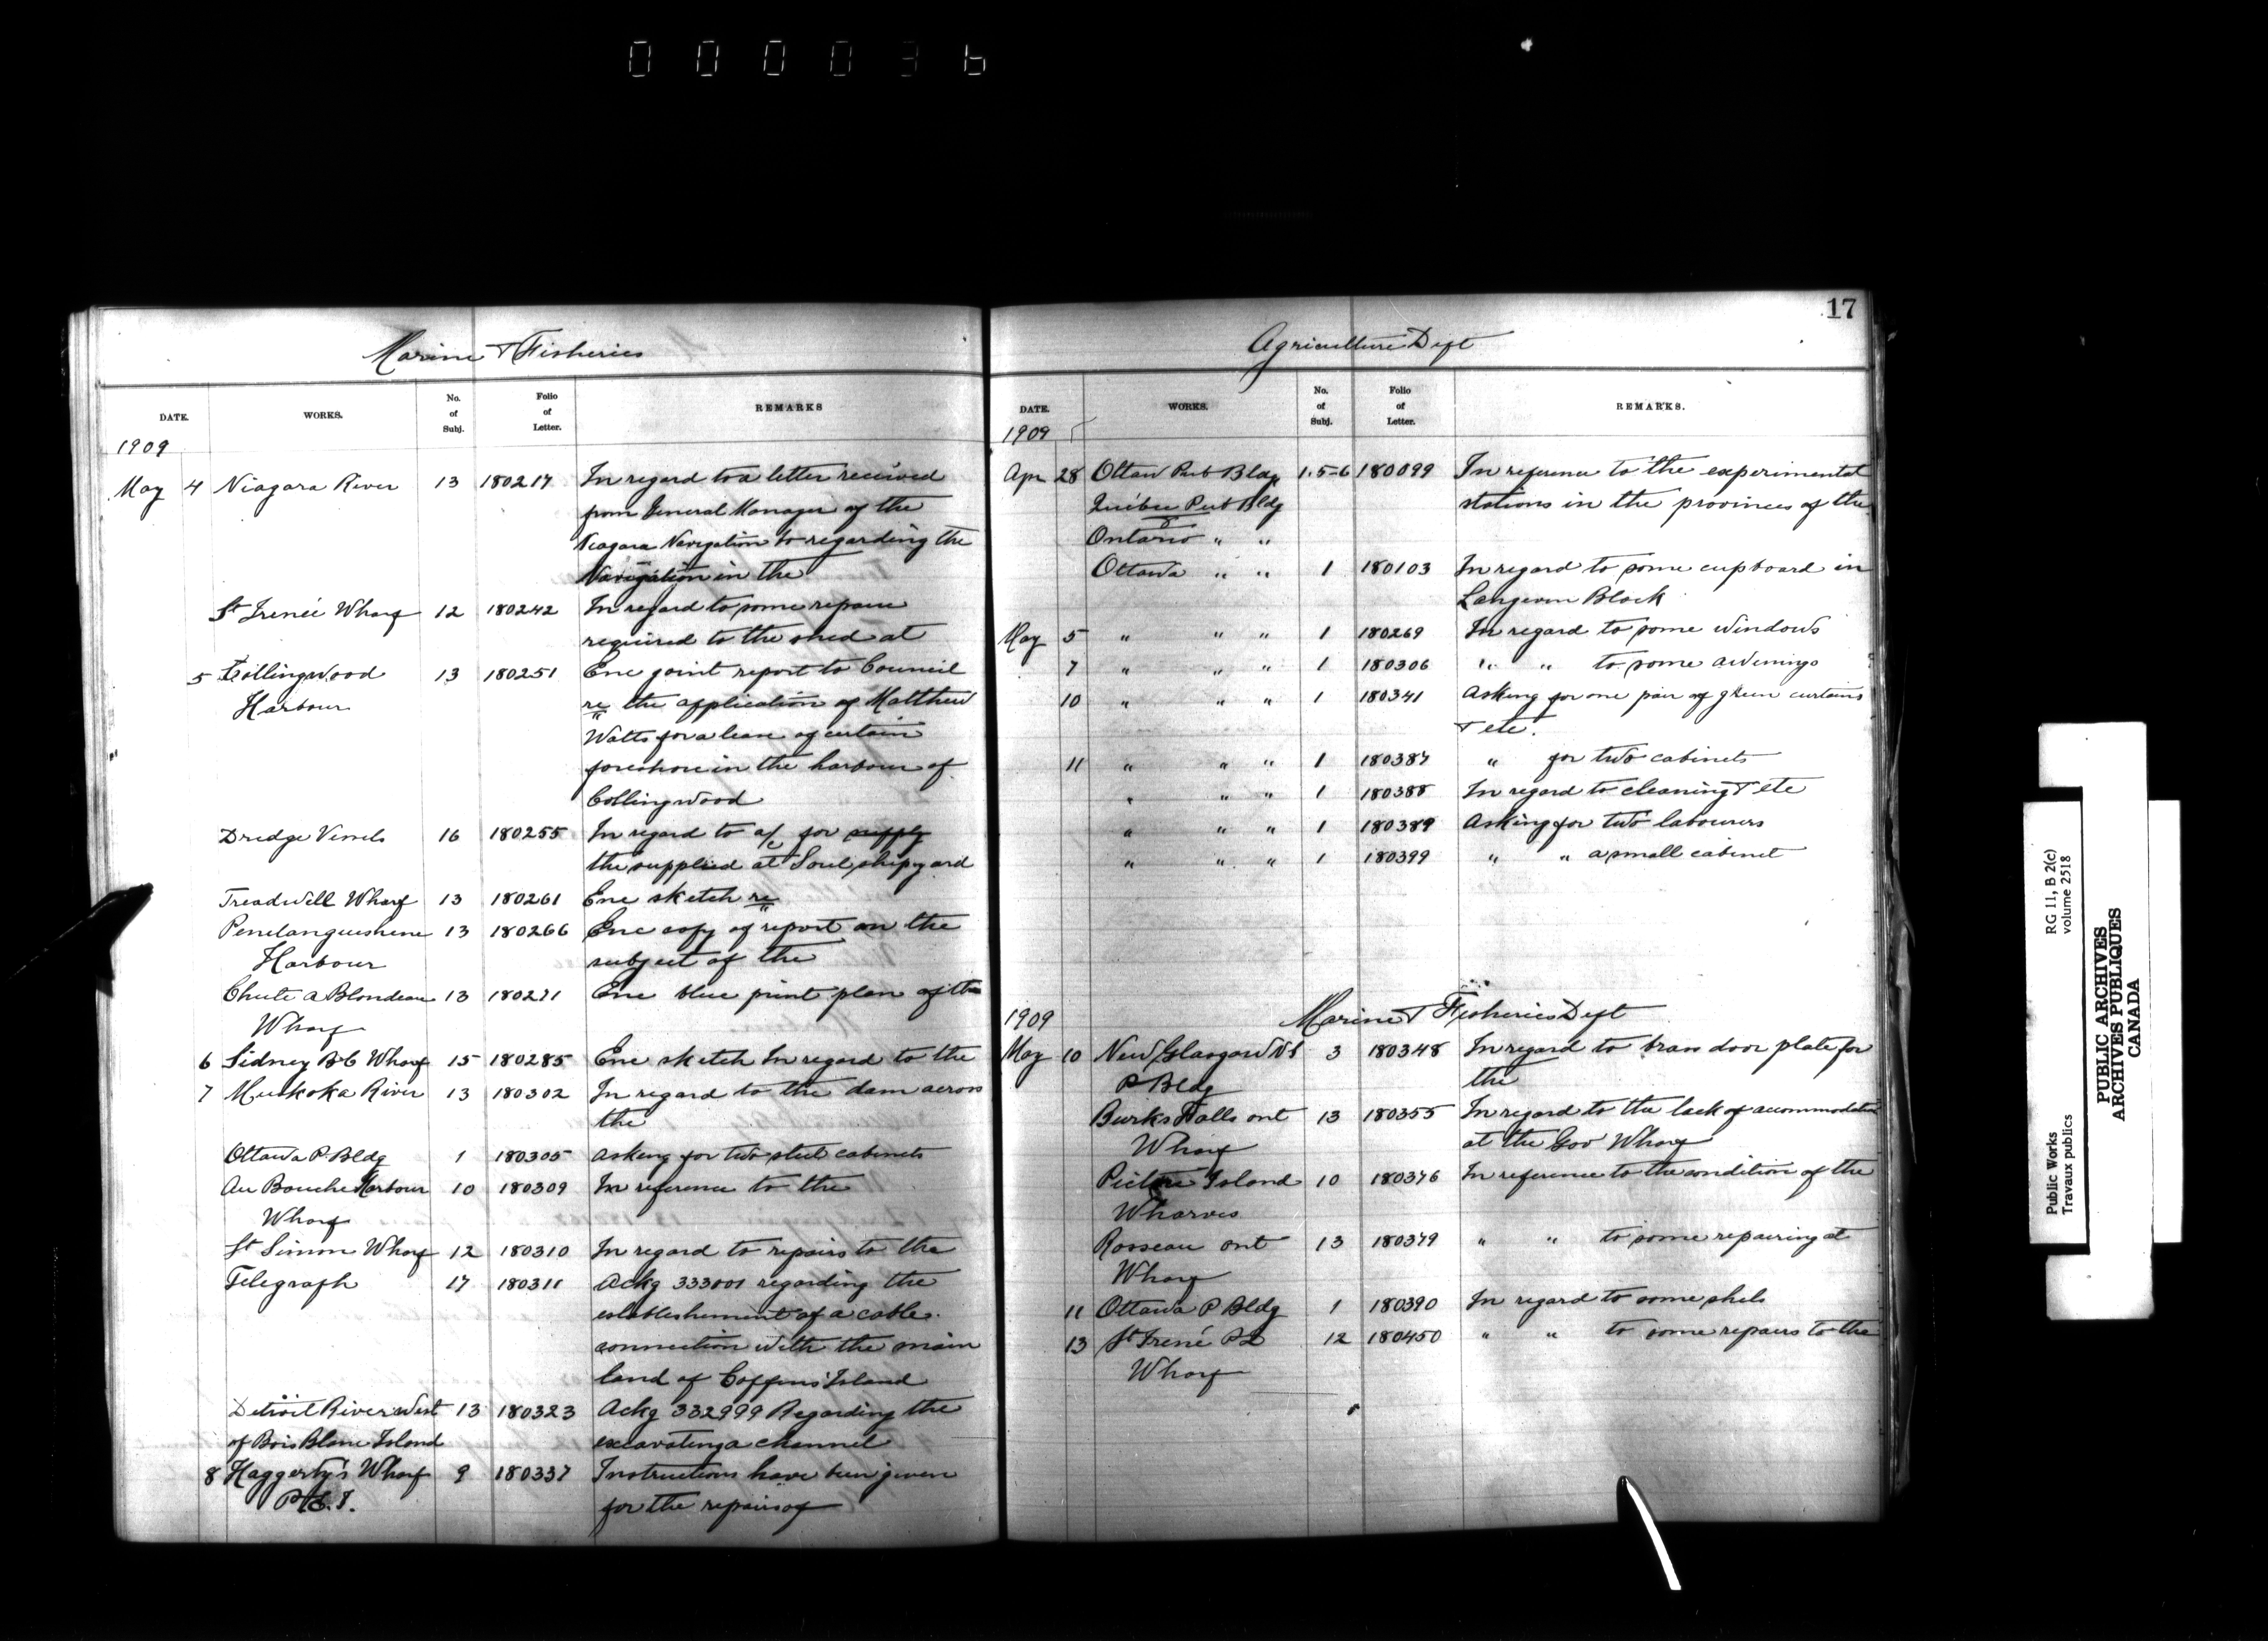 000036
Marine & Fisheries
DATE. WORKS. No. of Subj. Folio of Letter. REMARKS
1909
May 4 Niagara River 13 180217 In regard to a letter received
from General Manager of the
Niagara Navigation to regarding the
Navigation in the
St Irenée Wharf 12 180242 In regard to some repairs
required to the shed at
5 Collingwood 13 180251 Enc joint report to Council
Harbour re the application of Matthew
Watts for a lease of certain
foreshore in the harbour of
Collingwood
Dredge Vessels 16 180255 In regard to a/c for supply
the supplied at Sorel shipyard
Treadwell Wharf 13 180261 Enc sketch re
Penetanguishene 13 180266 Enc copy of report on the
Harbour subject of the
Chute a Blondeau 13 180271 Enc blue print plan of the
Wharf
6 Sidney B C Wharf 15 180285 Enc sketch In regard to the
7 Muskoka River 13 180302 In regard to the dam across
the
Ottawa P. Bldg 1 180305 Asking for two steel cabinets
Au Bouche Harbour 10 180309 In reference to the
Wharf
St Simon Wharf 12 180310 In regard to repairs to the
Telegraph 17 180311 Ackg 333001 regarding the
establishement of a cable
connection with the main
land of Coffins Island
Detroit River West 13 180323 Ackg 332999 Regarding the
of Bois Blanc Island excavating a channel
8 Haggerty's Wharf 9 180337 Instructions have been given
P.E.I. for the repairs of
17
Agriculture Dept
DATE. WORKS. No. of Subj. Folio of Letter. REMARKS.
1909
Apr 28 Ottaw Pub Bldg 1.5-6 180099 In reference to the experimental
Quebec Pub Bldg stations in the provinces of the
Ontario " "
Ottawa " " 1 180103 In regard to some cupboard in
Langevin Block
May 5 " " " 1 180269 In regard to some windows
7 " " " 1 180306 " " to some awnings
10 " " " 1 180341 Asking for one pair of green curtains
& etc.
11 " " " 1 180387 " for two cabinets
" " " 1 180388 In regard to cleaning & etc
" " " 1 180389 Asking for two labourers
" " " 1 180399 " " a small cabinet
1909 Marine & Fisheries Dept
May 10 New Glasgow N S 3 180348 In regard to brass door plate for
P Bldg the
Burks Falls ont 13 180355 In regard to the lack of accommodation
Wharf at the Gov Wharf
Pictou Island 10 180376 In reference to the condition of the
Wharves
Rosseau ont 13 180379 " " to some repairing at
Wharf
11 Ottawa P Bldg 1 180390 In regard to some shels
13 St Irené P2 12 180450 " " to some repairs to the
Wharf
Public Works
Travaux publics
RG 11, B 2(c)
volume 2518
PUBLIC ARCHIVES
ARCHIVES PUBLIQUES
CANADA